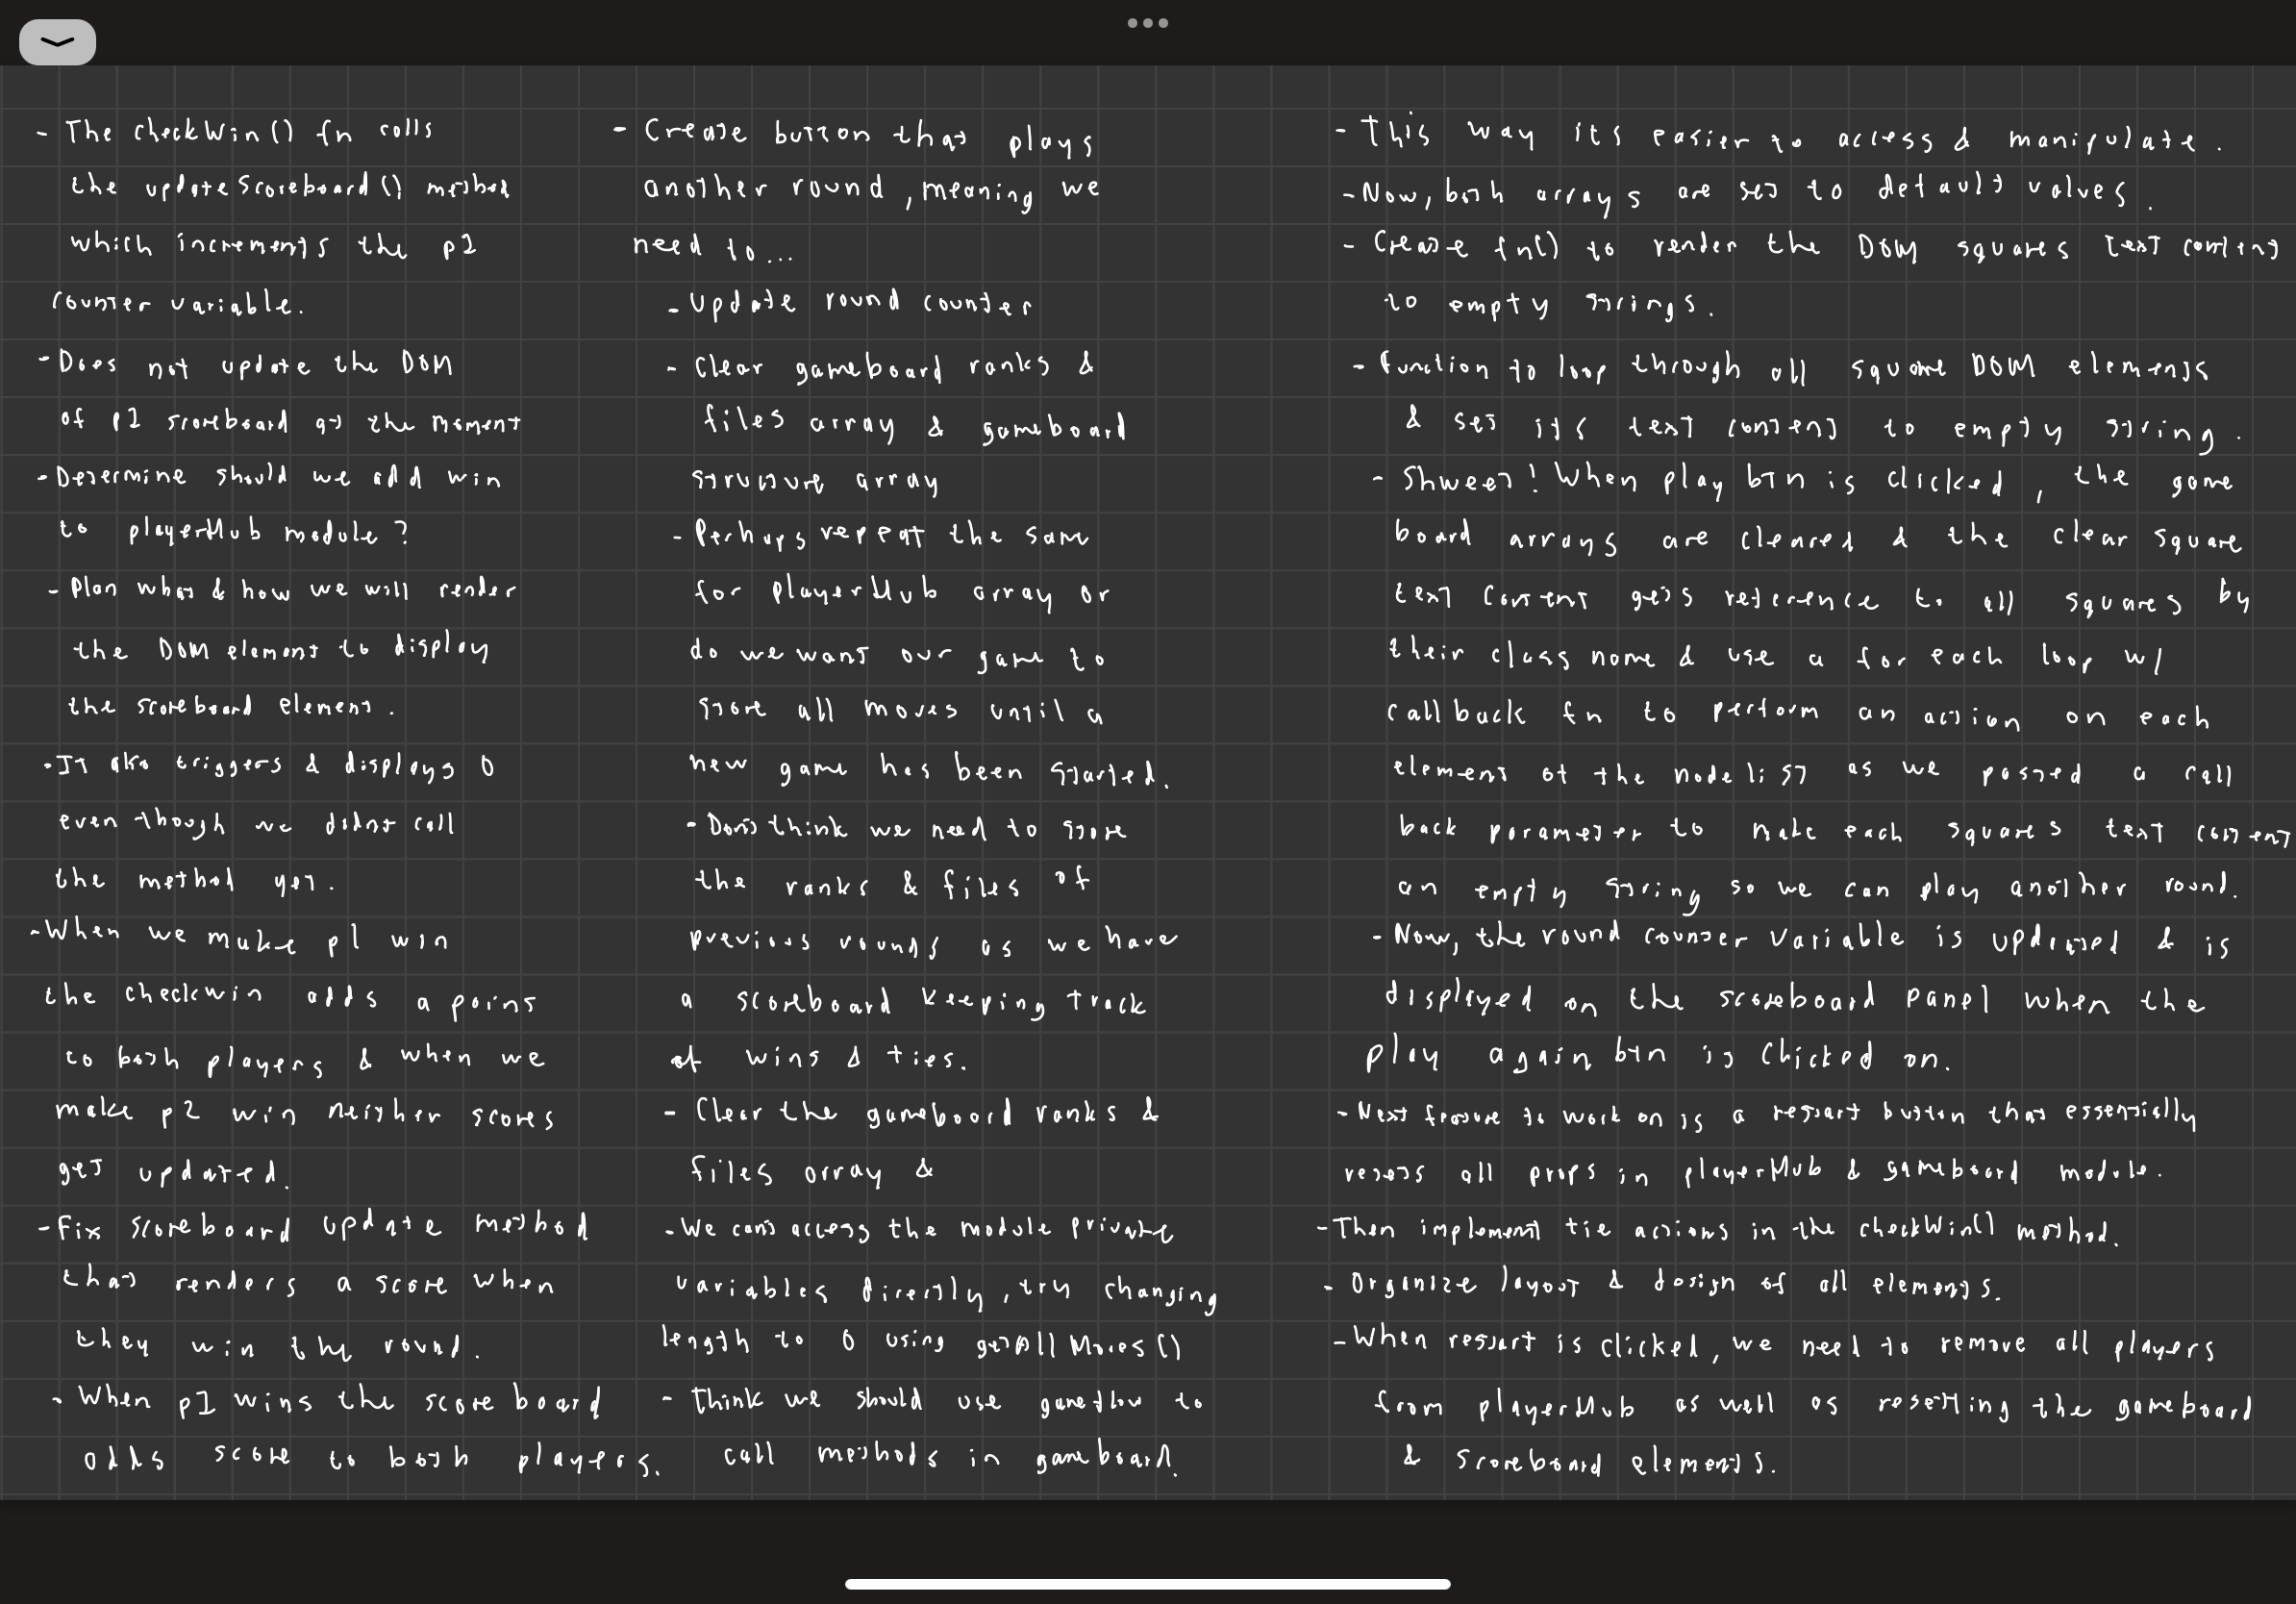 - The checkWin() fn calls
the updateScoreboard() method
which increments the p1
counter variable.
- Does not update the DOM
of p1 scoreboard at the moment
- Determine should we add win
to playerHub module?
- Plan what & how we will render
the DOM element to display
the scoreboard element.
- It also triggers & displays 0
even though we didnt call
the method yet.
- When we make p1 win
the checkwin adds a point
to both players & when we
make p2 win neither scores
get updated.
- Fix scoreboard update method
that renders a score when
they win the round.
- When p1 wins the scoreboard
adds score to both players.
- Create button that plays
another round, meaning we
need to...
- Update round counter
- Clear gameboard ranks &
files array & gameboard
structure array
- Perhaps repeat the same
for playerHub array or
do we want our game to
store all moves until a
new game has been started.
- Dont think we need to store
the ranks & files of
previous rounds as we have
a scoreboard keeping track
of wins & ties.
- Clear the gameboard ranks &
files array &
- We cant access the module private
variables directly, try changing
length to 0 using getAllMoves()
- Think we should use gameflow to
call methods in gameboard.
- This way its easier to access & manipulate.
- Now, both arrays are set to default values.
- Create fn() to render the DOM squares text content
to empty strings.
- Function to loop through all square DOM elements
& set its text content to empty string.
- Shweet! When play btn is clicked, the game
board arrays are cleared & the clear square
text content gets reference to all squares by
their class name & use a for each loop w/
callback fn to perform an action on each
element of the nodelist as we passed a call
back parameter to make each squares text content
an empty string so we can play another round.
- Now, the round counter variable is updated & is
displayed on the scoreboard panel when the
play again btn is clicked on.
- Next feature to work on is a restart button that essentially
resets all props in playerHub & gameboard module.
- Then implement tie actions in the checkWin() method.
- Organize layout & design of all elements.
- When restart is clicked, we need to remove all players
from playerHub as well as resetting the gameboard
& scoreboard elements.